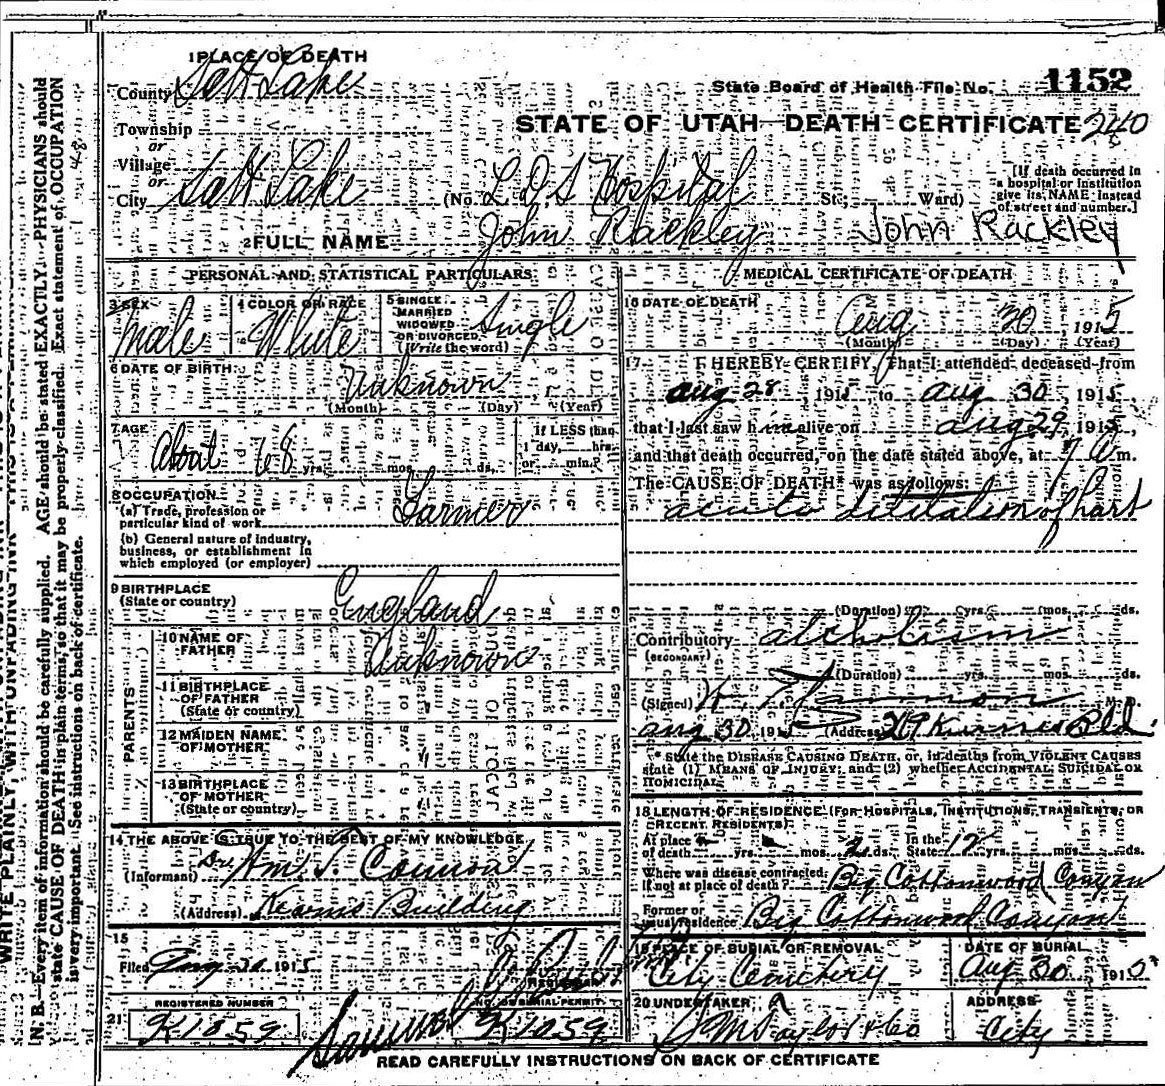 1 PLACE OF DEATH
County Salt Lake
State Board of Health File No. 1152
Township
or
STATE OF UTAH—DEATH CERTIFICATE 240
Village
or
City Salt Lake (No. L.D.S Hospital St.; Ward)
[If death occurred in a hospital or institution give its NAME instead of street and number.]
2 FULL NAME John Rackley John Rackley
PERSONAL AND STATISTICAL PARTICULARS
3 SEX Male
4 COLOR OR RACE White
5 SINGLE MARRIED WIDOWED OR DIVORCED (Write the word) Single
6 DATE OF BIRTH Unknown
(Month) (Day) (Year)
7 AGE About 68 yrs. mos. ds.
If LESS than 1 day, hrs. or min.?
8 OCCUPATION
(a) Trade, profession or particular kind of work Farmer
(b) General nature of industry, business, or establishment in which employed (or employer)
9 BIRTHPLACE
(State or country) England
PARENTS
10 NAME OF FATHER Unknown
11 BIRTHPLACE OF FATHER
(State or country)
12 MAIDEN NAME OF MOTHER
13 BIRTHPLACE OF MOTHER
(State or country)
14 THE ABOVE IS TRUE TO THE BEST OF MY KNOWLEDGE
(Informant)
(Address) Kearns Building
15
Filed 1915
REGISTERED NUMBER
21 K1059
NO. ON BURIAL PERMIT
K1059
MEDICAL CERTIFICATE OF DEATH
16 DATE OF DEATH
Aug 30, 1915
(Month) (Day) (Year)
17 I HEREBY CERTIFY, That I attended deceased from
Aug 28, 1915 to Aug 30, 1915,
that I last saw him alive on Aug 29, 1915,
and that death occurred, on the date stated above, at 7 A m.
The CAUSE OF DEATH was as follows:
of hart
(Duration) yrs. mos. ds.
Contributory alcholism
(SECONDARY)
(Duration) yrs. mos. ds.
(Signed) M. D.
Aug 30, 191 (Address)
State the DISEASE CAUSING DEATH, or, in deaths from VIOLENT CAUSES
state (1) MEANS OF INJURY; and (2) whether ACCIDENTAL, SUICIDAL OR
HOMICIDAL
18 LENGTH OF RESIDENCE (FOR HOSPITALS, INSTITUTIONS, TRANSIENTS, OR
RECENT RESIDENTS)
At place of death yrs. mos. 2 ds. In the State 12 yrs. mos. ds.
Where was disease contracted, if not at place of death? Big Cottonwood Canyon
Former or usual residence Big Cottonwood Canyon
19 PLACE OF BURIAL OR REMOVAL
City Cemetery
DATE OF BURIAL
Aug 30 191
20 UNDERTAKER
S M Taylor & Co
ADDRESS
City
READ CAREFULLY INSTRUCTIONS ON BACK OF CERTIFICATE
N. B.—Every item of information should be carefully supplied. AGE should be stated EXACTLY. PHYSICIANS should
state CAUSE OF DEATH in plain terms, so that it may be properly classified. Exact statement of OCCUPATION
is very important. See instructions on back of certificate.